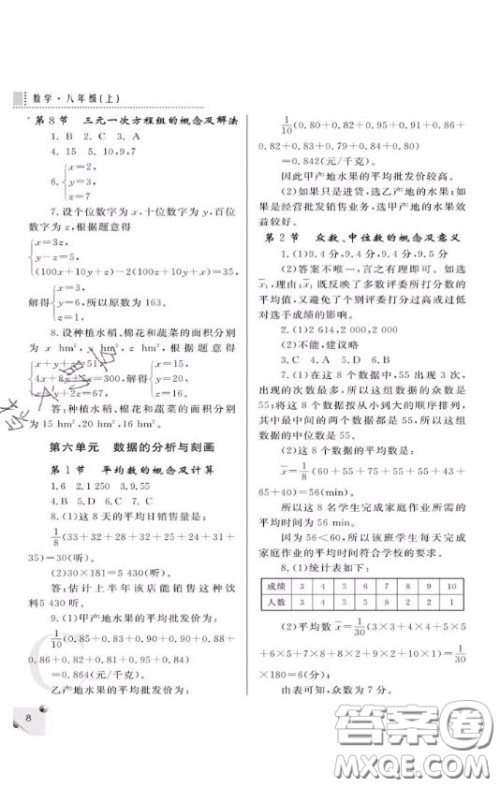 数学·八年级(上)
第8节 三元一次方程组的概念及解法
1. B 2. C 3. A
4. 15 5. 10,9,7
6. {x=2, y=3, z=7
7. 设个位数字为 x,十位数字为 y,百位
数字为 z,根据题意得
{x=3z,
x-y=z,
(100x+10y+z)-2(100z+10y+x)=35,
解得{x=3, y=6, z=1,所以原数为163.
8. 设种植水稻、棉花和蔬菜的面积分别
为 x hm², y hm², z hm²,根据题意得
{x+y+z=51, 4x+8y+5z=300, x+y+2z=67,解得{x=15, y=20, z=16.
答:种植水稻、棉花和蔬菜的面积分别
为15 hm²,20 hm²,16 hm².
第六单元 数据的分析与刻画
第1节 平均数的概念及计算
1. 6 2. 1 250 3. 9,55
4. B 5. D 6. C 7. C
8. (1)这8天的平均日销售量是:
1/8(33+32+28+32+25+24+31+
35)=30(听).
(2)30×181=5 430(听).
答:估计上半年该店能销售这种饮
料5 430听.
9. (1)甲产地水果的平均批发价为:
1/10(0.85+0.83+0.90+0.90+0.88+
0.86+0.82+0.81+0.95+0.84)
=0.864(元/千克).
乙产地水果的平均批发价为:
8
1/10(0.80+0.82+0.95+0.91+0.86+
0.82+0.83+0.79+0.84+0.80)
=0.842(元/千克).
因此甲产地水果的平均批发价较高.
(2)如果只是进货,选乙产地的水果;如
果是经营批发销售业务,选甲产地的水果效
益较好.
第2节 众数、中位数的概念及意义
1. (1)9.4分,9.4分,9.5分
(2)答案不唯一,言之有理即可.如:选
x̄₁,理由:x̄₁既反映了多数评委所打分数的
平均值,又避免了个别评委打分过高或过低
对选手成绩的影响.
2. (1)2 614,2 000,2 000
(2)不能,建议略
3. C 4. A 5. C 6. B
7. (1)在这8个数据中,55出现3次,
出现的次数最多,所以这组数据的众数是
55;将这8个数据按从小到大的顺序排列,
其中最中间的两个数据都是55,所以这组数
据的中位数是55.
(2)这8个数据的平均数是:
x̄=1/8(60+55+75+55+55+43+
65+40)=56(min).
所以这8名学生完成家庭作业所需的
平均时间为56 min.
因为56<60,所以该班学生每天完成
家庭作业的平均时间符合学校的要求.
8. (1)统计表如下:
成绩 3 4 5 6 7 8 9 10
人数 3 4 5 6 8 2 1 1
(2)平均数x̄=1/30(3×3+4×4+5×5
+6×6+7×8+8×2+9×1+10×1)=1/30
×180=6(分);
由表可知,众数为7分.
答案圈
MXQE.COM